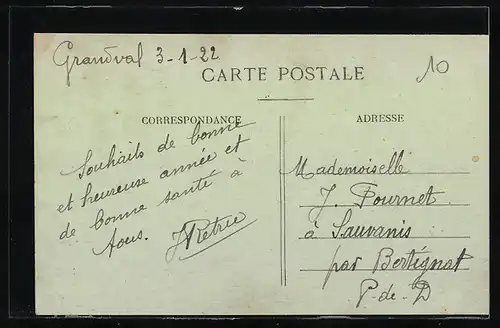 Grandval 3-1-22
10
CARTE POSTALE
CORRESPONDANCE
Souhaits de bonne
et heureuse année et
de bonne santé à
tous.
ADRESSE
Mademoiselle
J. Pournet
à Sauvanis
par Bertignat
P-de-D